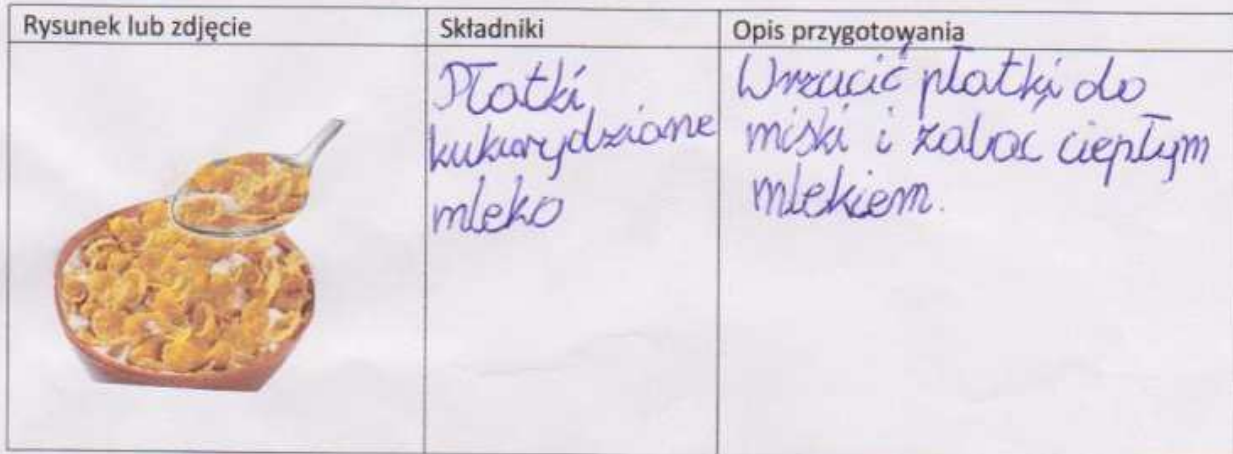 Rysunek lub zdjęcie
Składniki
Opis przygotowania
Płatki
kukurydziane
mleko
Wrzucić płatki do
miski i zalac ciepłym
mlekiem.